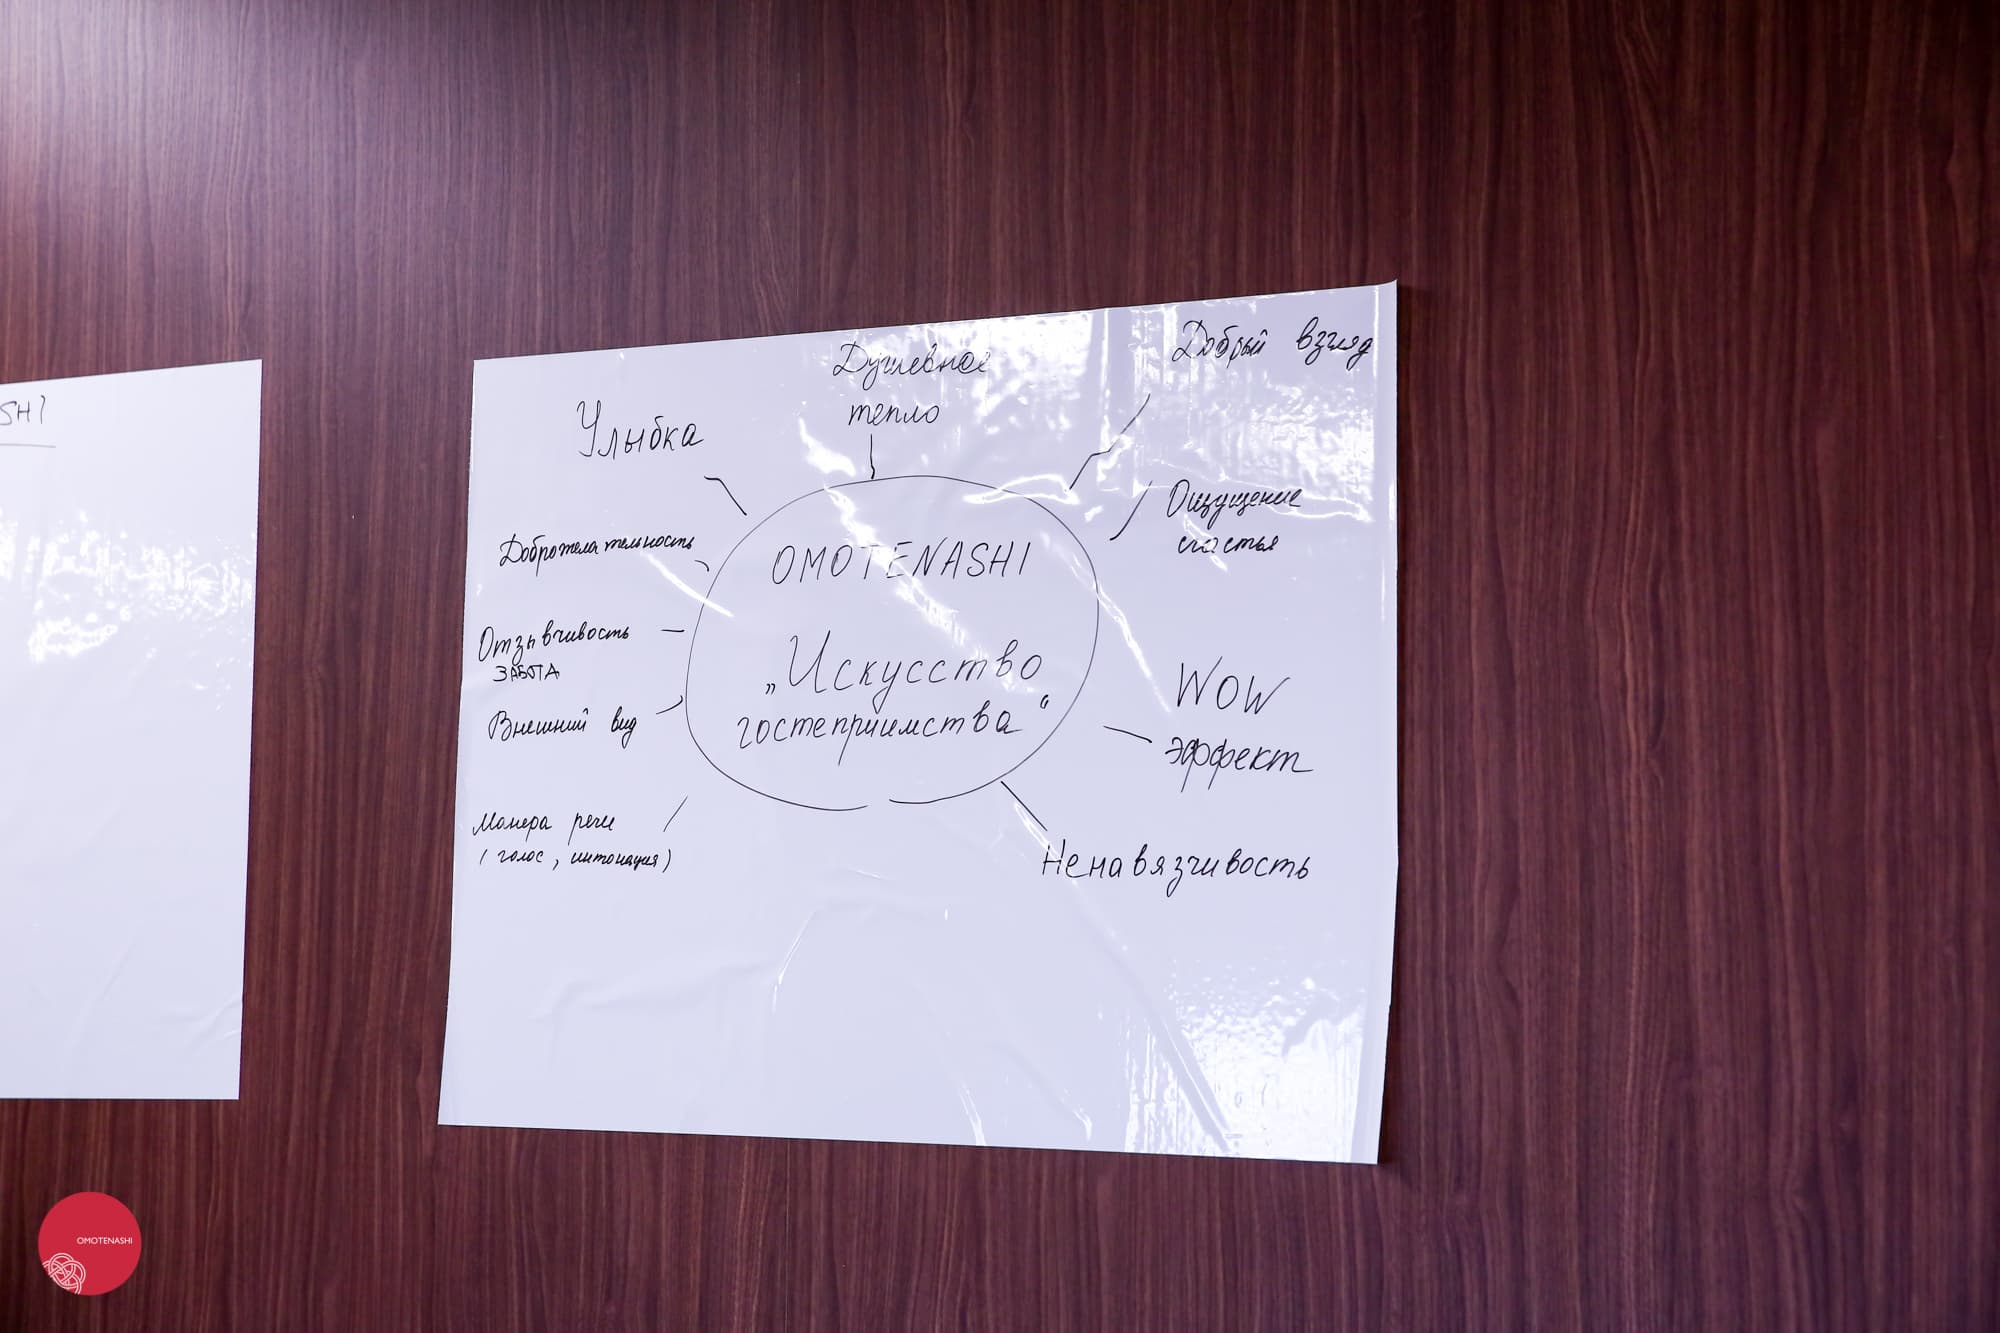 SHI
Душевное
тепло
Добрый взгляд
Улыбка
Ощущение
счастья
Доброжелательность
OMOTENASHI
Отзывчивость
ЗАБОТА
„Искусство
гостеприимства“
WOW
эффект
Внешний вид
Манера речи
(голос, интонация)
Ненавязчивость
OMOTENASHI